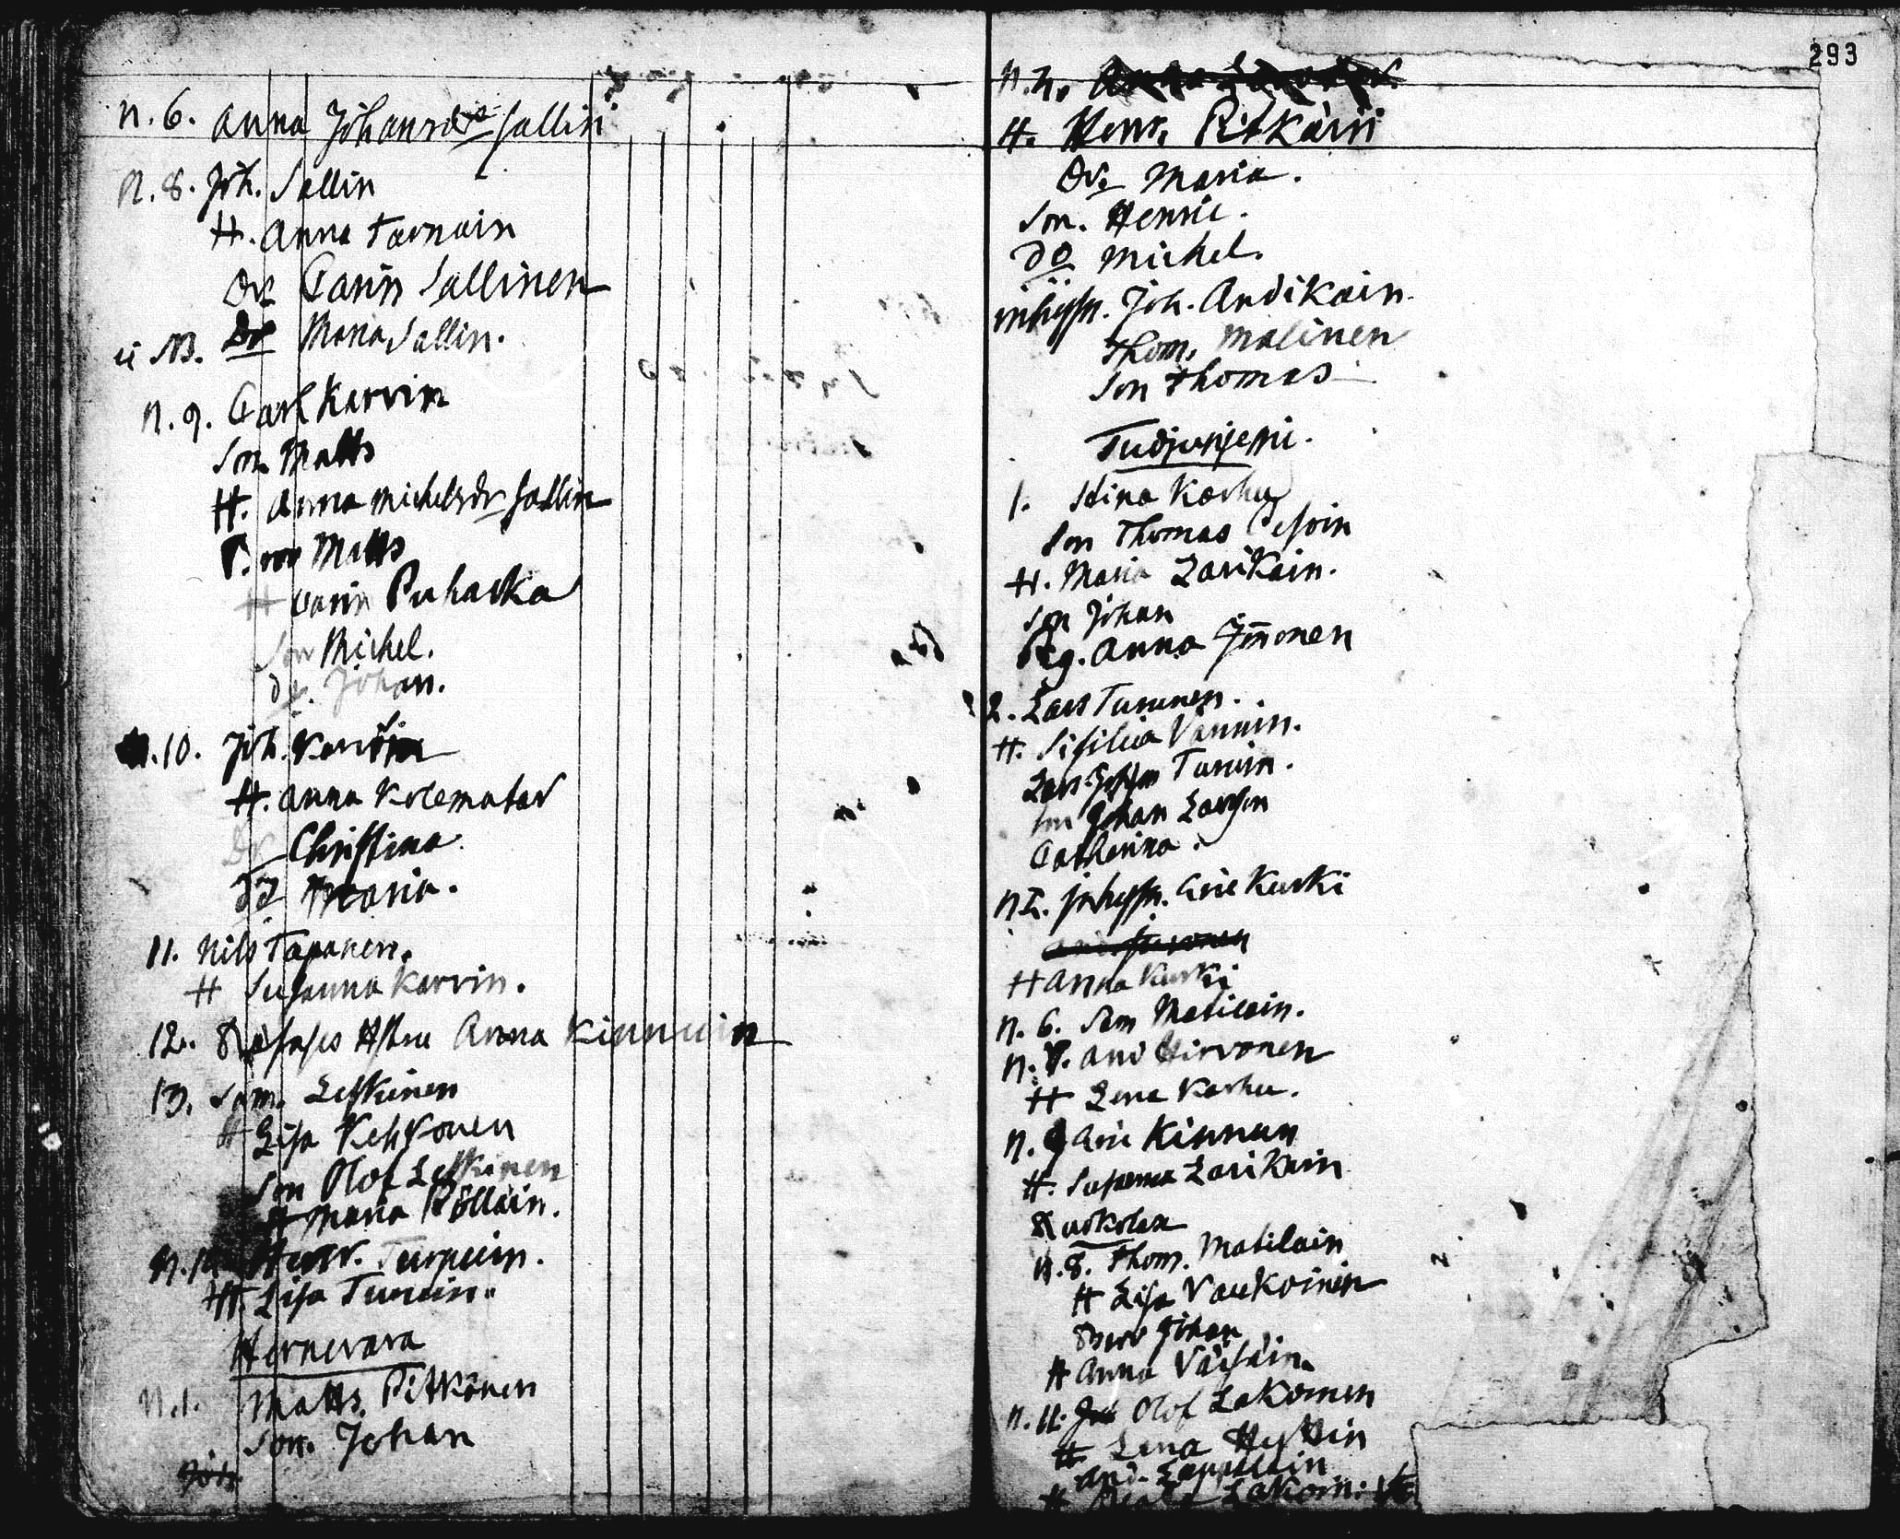 N. 6. Anna Johansdr Sallin
N. 8. Joh. Sallin
H. Anna Tarnain
Dr Carin Sallinen
NB. Dr Maria Sallin.
N. 9. Carl Karvin
Son Matts
H. Anna Michelsdr Sallin
Matts
H Carin Puhacka
Son Michel.
do. Johan.
N. 10. Joh.
H. Anna Kolematar
Dr Christina
do Maria.
11. Nils Tapanen.
H Susanna Karvin.
12. Anna Kinnuin
13. Sam. Leskinen
H Lisa Kehkonen
Son Olof Leskinen
H Maria Pölläin.
N. Henr. Turpuin.
H. Lisa Turuin.
Hernevara
N. 1. Matts Pitkönen
Son. Johan
293
H. Henr. Pitkäin
Dr. Maria.
Son. Henric.
do Michel.
inhyssn. Joh. Andikain.
Thom. Malinen
Son Thomas
1. Stina Karhu
Son Thomas
H. Maria Zarikain.
Son Johan
Pig. Anna Immonen
2. Lars Turunen.
H. Sisilia Vännin.
Lars Turuin.
Son Johan Larsson
Catharina.
inhyssn. Eric Kurki
H Anna Kurki
N. 6. Sam Matilain.
N. And Hirvonen
H Lena Karhu.
N. 9 Eric Kinnun
H. Susanna Zarikain
Ruokolax
N. 8. Thom. Matilain
H Lisa Vaukoinen
Johan
H Anna Väisäin.
N. 11. Olof Lakoinen
H Lena
And. Lappalain
H Lakoin.